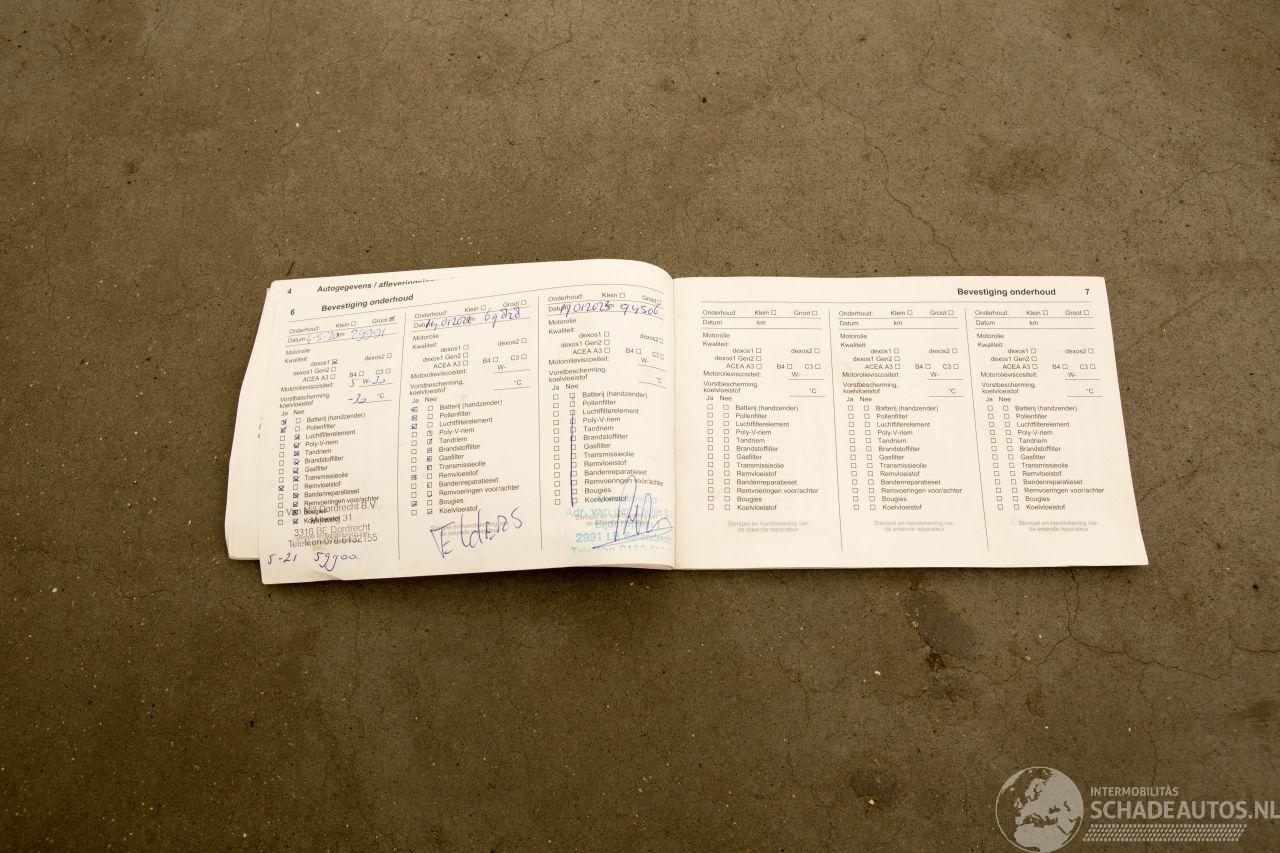 4 Autogegevens /
6 Bevestiging onderhoud
Onderhoud: Klein Groot
Datum 4-5-20 km 29991
Motorolie
Kwaliteit:
dexos1 dexos2
dexos1 Gen2
ACEA A3 B4 C3
Motorolieviscositeit: 5 W- 30
Vorstbescherming,
koelvloeistof -30 °C
Ja Nee
Batterij (handzender)
Pollenfilter
Luchtfilterelement
Poly-V-riem
Tandriem
Brandstoffilter
Gasfilter
Transmissieolie
Remvloeistof
Bandenreparatieset
Remvoeringen voor/achter
Bougies
Koelvloeistof
Dordrecht B.V.
31
3316 BE Dordrecht
5-21 59900
Onderhoud: Klein Groot
Datum km
Motorolie
Kwaliteit:
dexos1 dexos2
dexos1 Gen2
ACEA A3 B4 C3
Motorolieviscositeit: W-
Vorstbescherming,
koelvloeistof °C
Ja Nee
Batterij (handzender)
Pollenfilter
Luchtfilterelement
Poly-V-riem
Tandriem
Brandstoffilter
Gasfilter
Transmissieolie
Remvloeistof
Bandenreparatieset
Remvoeringen voor/achter
Bougies
Koelvloeistof
Stempel en handtekening van
de erkende reparateur
Elders
Onderhoud: Klein Groot
Datum km 94506
Motorolie
Kwaliteit:
dexos1 dexos2
dexos1 Gen2
ACEA A3 B4 C3
Motorolieviscositeit: W-
Vorstbescherming,
koelvloeistof °C
Ja Nee
Batterij (handzender)
Pollenfilter
Luchtfilterelement
Poly-V-riem
Tandriem
Brandstoffilter
Gasfilter
Transmissieolie
Remvloeistof
Bandenreparatieset
Remvoeringen voor/achter
Bougies
Koelvloeistof
Adr. van der
2991 Barendrecht
Bevestiging onderhoud 7
Onderhoud: Klein Groot
Datum km
Motorolie
Kwaliteit:
dexos1 dexos2
dexos1 Gen2
ACEA A3 B4 C3
Motorolieviscositeit: W-
Vorstbescherming,
koelvloeistof °C
Ja Nee
Batterij (handzender)
Pollenfilter
Luchtfilterelement
Poly-V-riem
Tandriem
Brandstoffilter
Gasfilter
Transmissieolie
Remvloeistof
Bandenreparatieset
Remvoeringen voor/achter
Bougies
Koelvloeistof
Stempel en handtekening van
de erkende reparateur
Onderhoud: Klein Groot
Datum km
Motorolie
Kwaliteit:
dexos1 dexos2
dexos1 Gen2
ACEA A3 B4 C3
Motorolieviscositeit: W-
Vorstbescherming,
koelvloeistof °C
Ja Nee
Batterij (handzender)
Pollenfilter
Luchtfilterelement
Poly-V-riem
Tandriem
Brandstoffilter
Gasfilter
Transmissieolie
Remvloeistof
Bandenreparatieset
Remvoeringen voor/achter
Bougies
Koelvloeistof
Stempel en handtekening van
de erkende reparateur
Onderhoud: Klein Groot
Datum km
Motorolie
Kwaliteit:
dexos1 dexos2
dexos1 Gen2
ACEA A3 B4 C3
Motorolieviscositeit: W-
Vorstbescherming,
koelvloeistof °C
Ja Nee
Batterij (handzender)
Pollenfilter
Luchtfilterelement
Poly-V-riem
Tandriem
Brandstoffilter
Gasfilter
Transmissieolie
Remvloeistof
Bandenreparatieset
Remvoeringen voor/achter
Bougies
Koelvloeistof
Stempel en handtekening van
de erkende reparateur
INTERMOBILITÁS
SCHADEAUTOS.NL